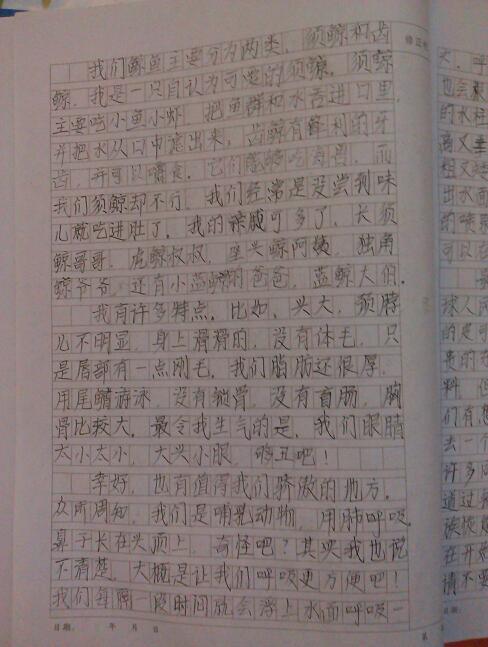 我们鲸鱼主要分为两类，须鲸和齿
鲸。我是一只自认为可爱的须鲸。须鲸
主要吃小鱼小虾，把鱼群和水吞进口里，
并把水从口中滤出来，齿鲸有锋利的牙
齿，并可以嚼食，它们能够吃海兽，而
我们须鲸却不行。我们经常是没尝到味
儿就吃进肚了。我的亲戚可多了，长须
鲸哥哥，虎鲸叔叔，座头鲸阿姨，独角
鲸爷爷，还有小蓝鲸的爸爸，蓝鲸大伯。
我有许多特点。比如，头大，颈脖
儿不明显，身上滑滑的，没有体毛，只
是唇部有一点刚毛。我们脂肪还很厚，
用尾鳍游泳，没有锁骨，没有盲肠，胸
骨比较大。最令我生气的是，我们眼睛
太小太小，大头小眼，够丑吧！
幸好，也有值得我们骄傲的地方。
众所周知，我们是哺乳动物，用肺呼吸。
鼻子长在头顶上，奇怪吧？其实我也说
不清楚，大概是让我们呼吸更方便吧！
我们每隔一段时间就会浮上水面呼吸一
日期： 年 月 日
第